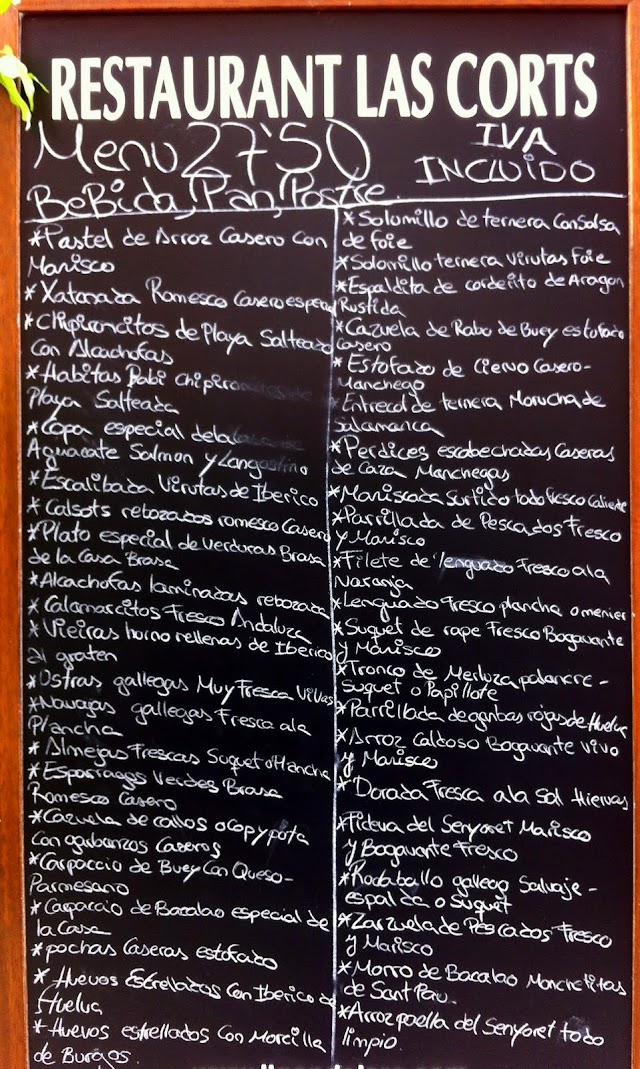 RESTAURANT LAS CORTS
Menu 27'50
IVA
INCLUIDO
BeBida, Pan, Postre
*Pastel de Arroz Casero Con
Marisco
*Xatonada Romesco Casero especial
*Chipironcitos de Playa Salteado
Con Alcachofas
*Habitas Babi chipironcitos de
Playa Salteada
*Copa especial dela Casa de
Aguacate Salmon y Langostino
*Escalibada Virutas de Iberico
*Calsots rebozados romesco Casero
*Plato especial de verduras Brasa
de la Casa Brasa
*Alcachofas laminadas rebozada
*Calamarcitos Fresco Andaluza
*Vieiras horno rellenas de Iberico
al graten
*Ostras gallegas Muy Fresca Vivas
*Navajas gallegas Fresca ala
Plancha
*Almejas Frescas Suquet o Plancha
*Esparragos Verdes Brasa
Romesco Casero
*Cazuela de callos o cap y pota
Con garbanzos Caseros
*Carpaccio de Buey Con Queso-
Parmesano
*Carpaccio de Bacalao especial de
la Casa
*pochas Caseras estofado
*Huevos Estrellados Con Iberico de
Huelva
*Huevos estrellados Con Morcilla
de Burgos.
*Solomillo de ternera Con Salsa
de foie
*Solomillo ternera Virutas Foie
*Espaldita de corderito de Aragon
Rustida
*Cazuela de Rabo de Buey estofado
casero
*Estofado de Ciervo Casero-
Manchego
*Entrecot de ternera Morucha de
Salamanca
*Perdices escabechadas Caseras
de Caza Manchegas
*Mariscada Surtido todo fresco Caliente
*Parrillada de Pescados Fresco
y Marisco
*Filete de lenguado Fresco ala
Naranja
*Lenguado Fresco plancha o menier
*Suquet de rape Fresco Bogavante
y Marisco
*Tronco de Merluza palancre-
Suquet o Papillote
*Parrillada de gambas rojas de Huelva
*Arroz Caldoso Bogavante Vivo
y Marisco
*Dorada Fresca ala Sal Hiervas
*Fideua del Senyoret Marisco
y Bogavante Fresco
*Rodaballo gallego Salvaje-
espalda o Suquet
*Zarzuela de Pescados Fresco
y Marisco
*Morro de Bacalao Monchelitas
de Sant Pau.
*Arroz paella del Senyoret todo
limpio.